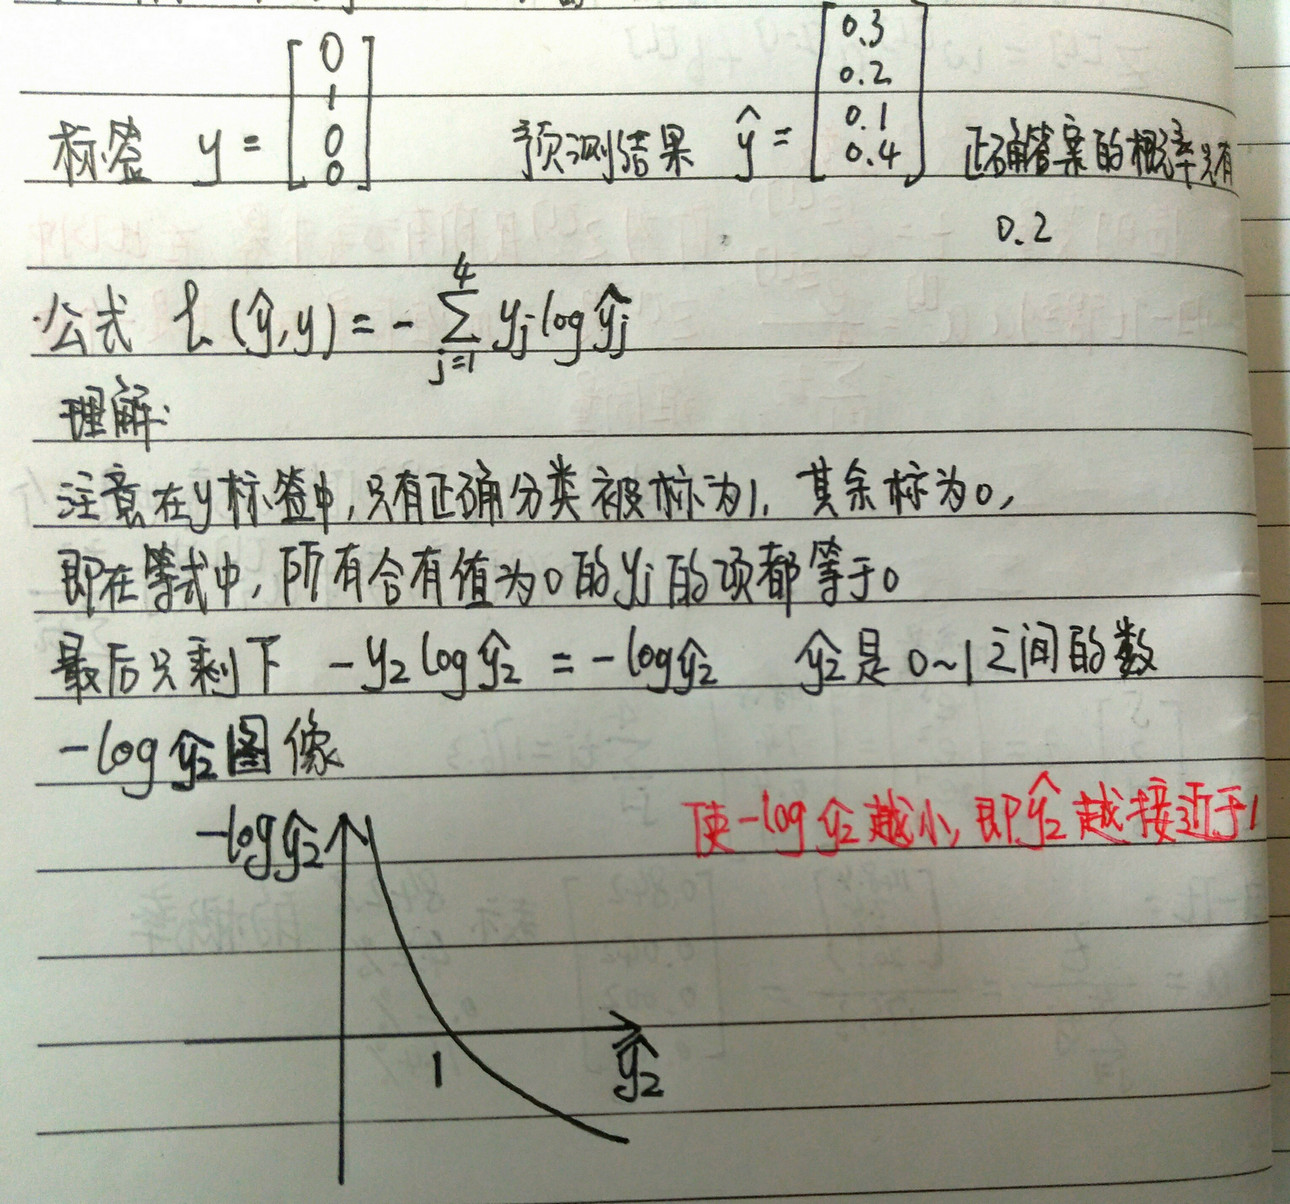 标签 y = [0 1 0 0] 预测结果 ŷ = [0.3 0.2 0.1 0.4] 正确答案的概率只有
0.2
公式 L(ŷ,y) = - ∑_{j=1}^{4} yj log ŷj
理解:
注意在y标签中,只有正确分类被标为1,其余标为0,
即在等式中,所有含有值为0的yj的项都等于0
最后只剩下 -y2 log ŷ2 = -log ŷ2 ŷ2是0~1之间的数
-log ŷ2图像
-log ŷ2
使-log ŷ2越小,即ŷ2越接近于1
1
ŷ2